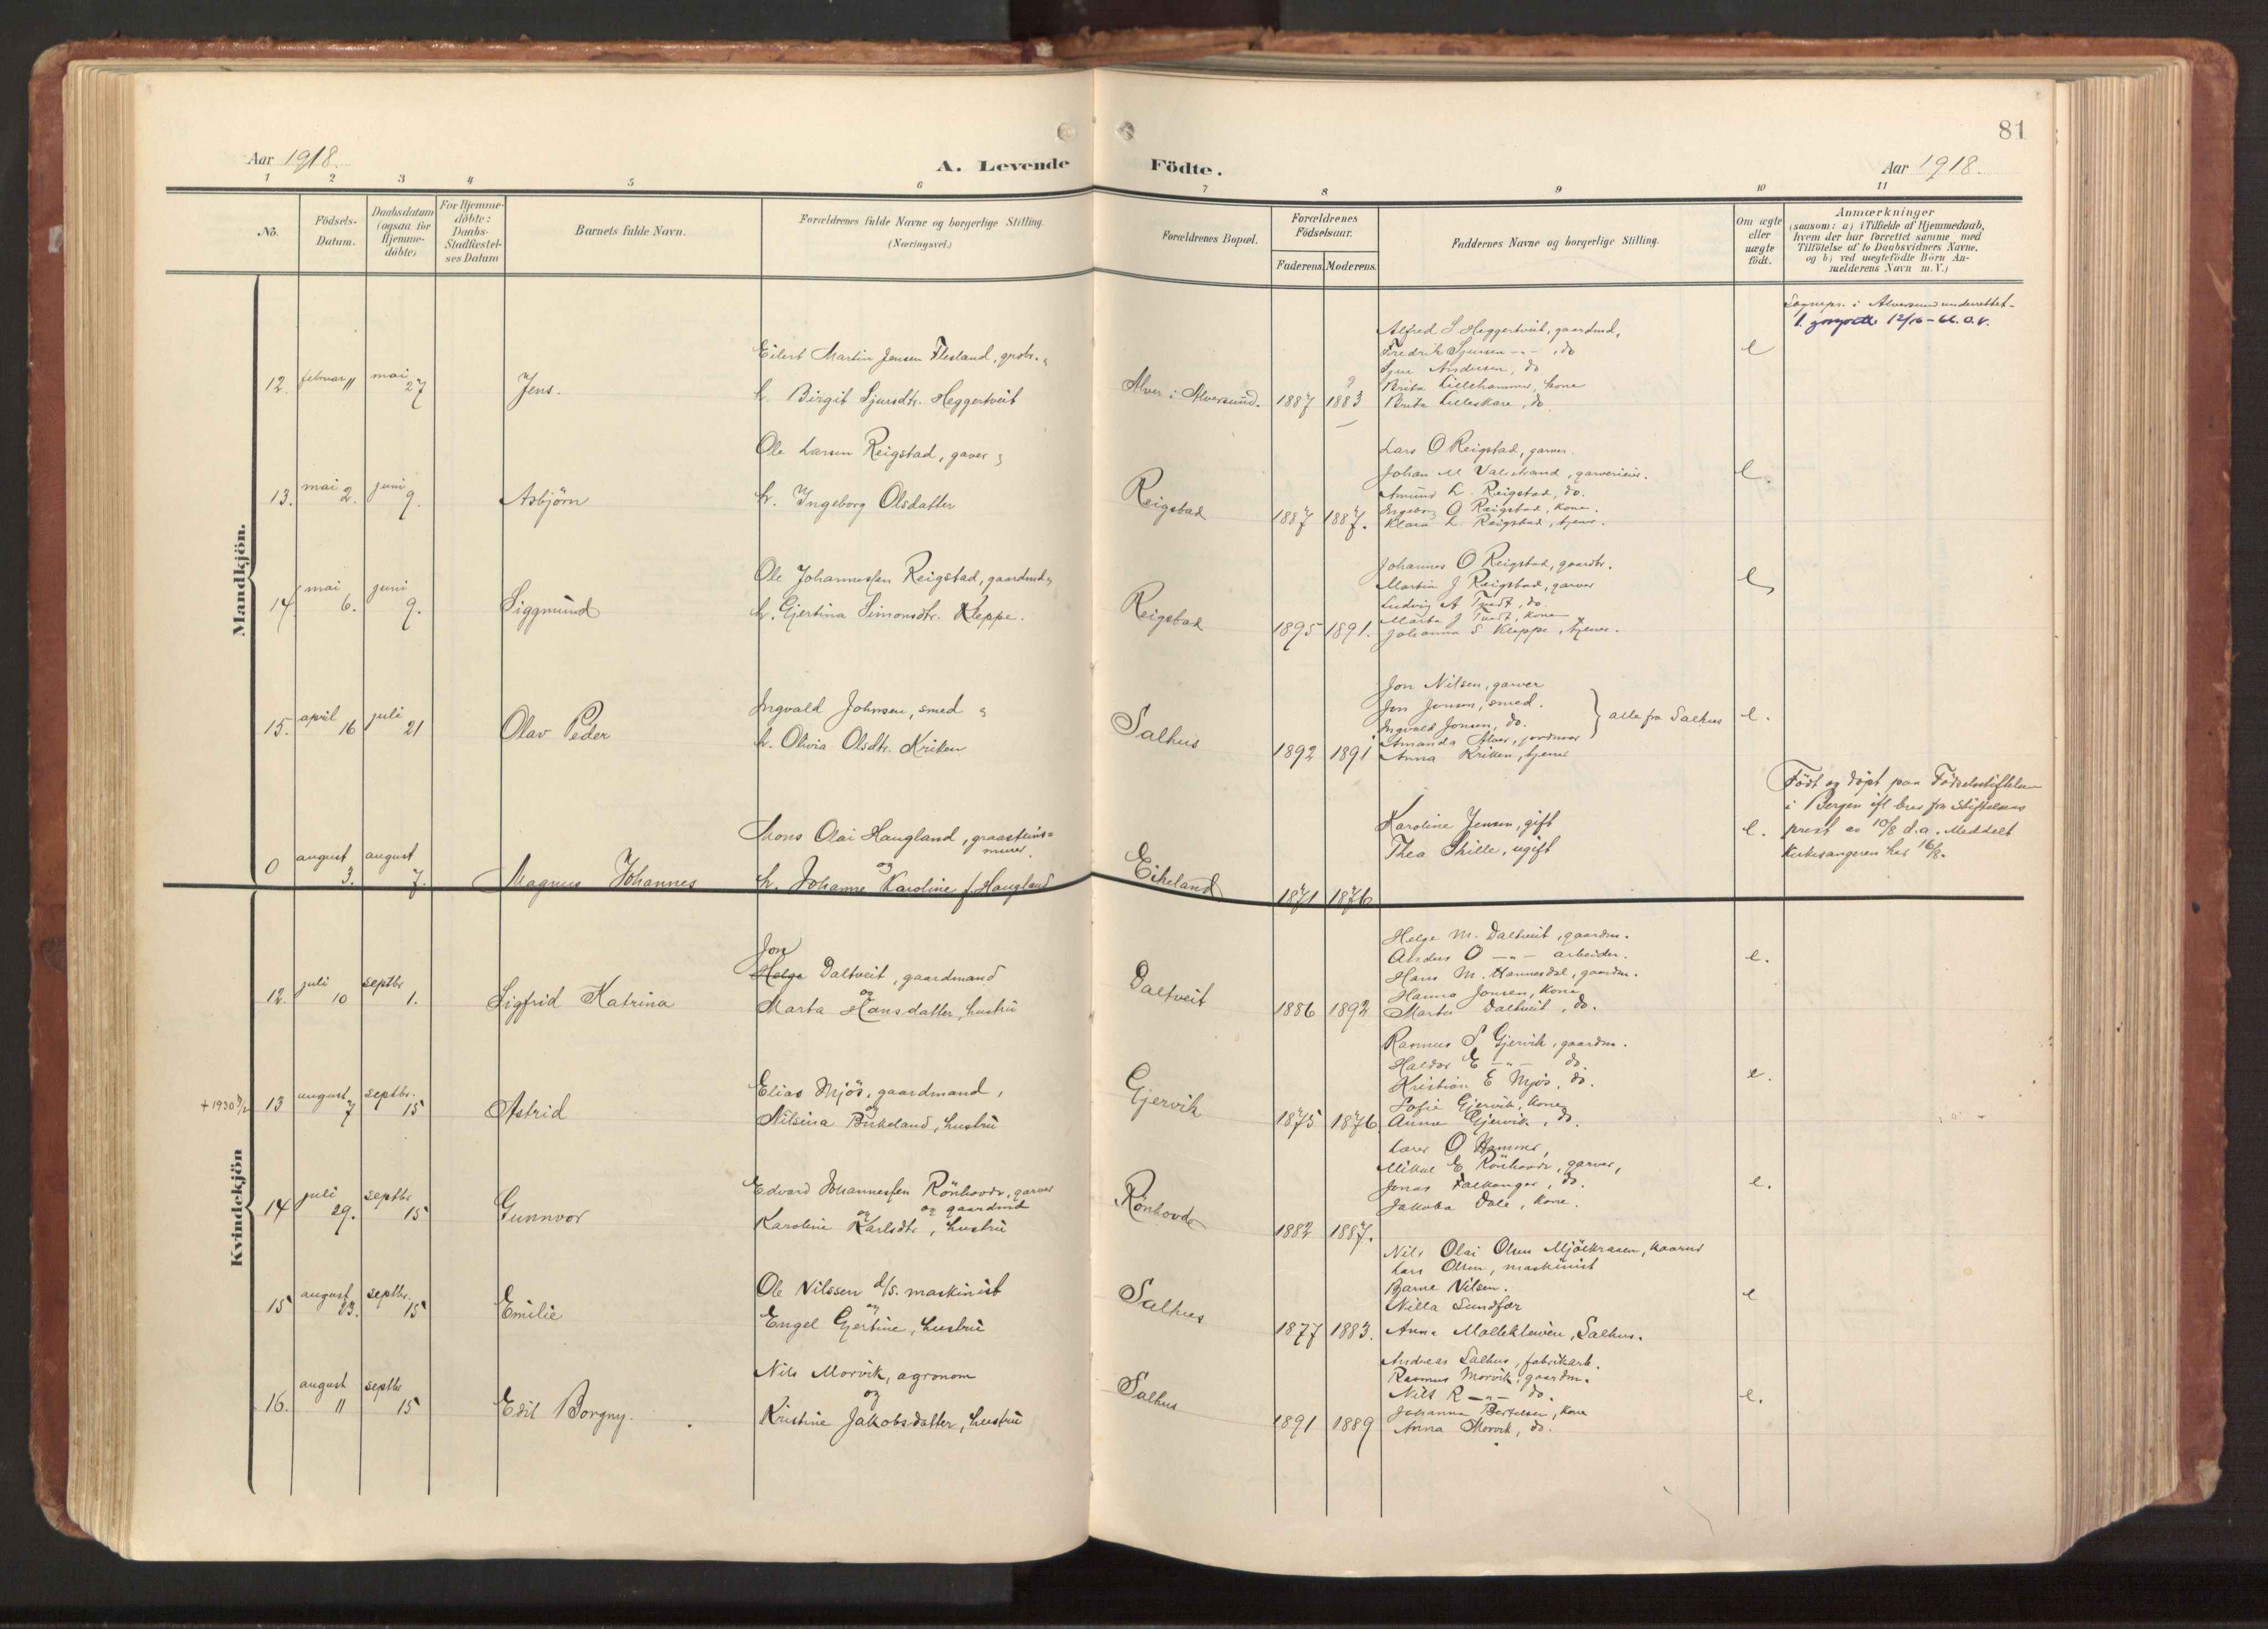 81
Aar 1918.
A. Levende Födte.
Aar 1918.
1 2 3 4 5 6 7 8 9 10 11
No.
Födsels-
Datum.
Daabsdatum
(ogsaa for
Hjemme-
döbte)
For Hjemme-
döbte:
Daabs-
Stadfæstel-
ses Datum
Barnets fulde Navn.
Forældrenes fulde Navne og borgerlige Stilling.
(Næringsvei.)
Forældrenes Bopæl.
Forældrenes
Födselsaar.
Faderens. Moderens.
Faddernes Navne og borgerlige Stilling.
Om ægte
eller
uægte
födt.
Anmærkninger
(saasom: a) i Tilfælde af Hjemmedaab,
hvem der har forrettet samme med
Tilföielse af to Daabsvidners Navne,
og b) ved uægtefödte Börn An-
melderens Navn m. V.)
Mandkjön.
12. februar 11 mai 27
Jens.
Eilert Martin Jensen Flesland, grobr. &
h. Birgit Sjursdtr. Heggertveit
Alver i Alversund.
1887 1883
Alfred S Heggertveit, gaardmd,
Fredrik Sjursen -"- , do
Sjur Andersen, do
Brita Lillehammer, kone
Brita Lilleskare, do.
e
Sognepr. i Alversund underrettet-
12/10-66. O.V.
13. mai 2. juni 9.
Asbjörn
Ole Larsen Reigstad, gaver &
h. Ingeborg Olsdatter
Reigstad
1887 1887.
Lars O Reigstad, garver.
Johan M Valestrand, garverieier.
Amund L. Reigstad, do.
Ingeborg O Reigstad, kone.
Klara L. Reigstad, tjener.
e.
14 mai 6. juni 9.
Siggmund
Ole Johannessen Reigstad, gaardmd &
h. Gjertina Simonsdtr. Kleppe.
Reigstad
1895 1891.
Johannes O Reigstad, gaardbr.
Martin J Reigstad, garver
Ludvig A Tvedt, do.
Marta J Tvedt, kone
Johanna S Kleppe, tjener.
e
15. april 16 juli 21
Olav Peder
Ingvald Johnsen, smed &
h. Olivia Olsdtr. Kriken
Salhus
1892 1891
Jon Nilsen, garver
Jon Jonsen, smed.
Ingvald Jonsen, do.
Amanda Alver, jordmor
Anna Kriken, tjener
alle fra Salhus
e.
0 august 3. august 7.
Magnus Johannes
Mons Olai Haugland, graasteins=
murer.
og
h. Johanne Karoline f. Haugland
Eikeland
1871 1876
Karoline Jensen, gift
Thea Skille, ugift
e.
Födt og döpt paa Födselsstiftelsen
i Bergen ifl brev fra Stiftelsens
prest av 10/8 d.a. Meddelt
Kirkesangeren her 16/8.
Kvindekjön
12. juli 10 septbr 1.
Sigfrid Katrina
Jon
Helge Daltveit, gaardmand
og
Marta Hansdatter, hustru
Daltveit
1886 1892
Helge M. Daltveit, gaardm.
Anders O -"- arbeider.
Hans M. Hannesdal, gaardm.
Hanna Jonsen, kone
Marta Daltveit, do.
e.
+ 1930
13 august 7 septbr. 15
Astrid
Elias Mjös, gaardmand,
og
Nilsina Birkeland, hustru
Gjervik
1875 1876
Rasmus S Gjervik, gaardm.
Haldor E -"- do.
Kristian E Mjös, do.
Sofie Gjervik, kone
Anna Gjervik, do.
e.
14 juli 29. septbr 15
Gunnvor
Edvard Johannessen Rönhovde, garver
og gaardmd
og
Karoline Karlsdtr, hustru
Rönhovde
1882 1887.
Lærer O Hammer,
Mikal E Rönhovde, garver,
Jonas Falkanger, do.
Jakoba Dale, kone.
e.
15 august 23. septbr. 15
Emilie
Ole Nilssen d/s. maskinist
og
Engel Gjertine, hustru
Salhus
1877 1883.
Nils Olai Olsen
Lars Olsen, maskinist
Barne Nilsen.
Nilla Sundfær
Anna Mollekleiven, Salhus.
e
16. august 11 septbr 15
Edit Borgny.
Nils Morvik, agronom
og
Kristine Jakobsdatter, hustru
Salhus
1891 1889
Andreas Salhus, fabrikarb.
Rasmus Morvik, gaardm.
Nils R -"- do.
Johanna Bertelsen, kone
Anna Morvik, do.
e.